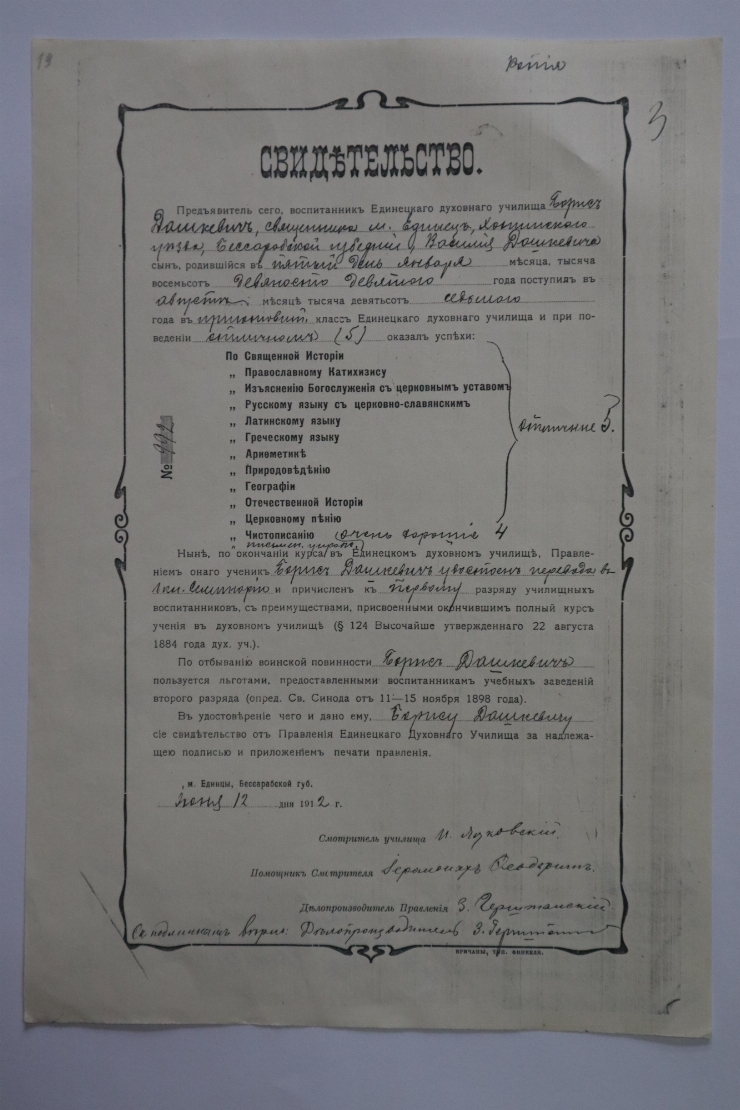 19
Копія
3
СВИДѢТЕЛЬСТВО.
Предъявитель сего, воспитанник Единецкаго духовнаго училища Борисъ
Дашкевичъ, священника м. Единец, Хотинскаго
уѣзда, Бессарабской губерніи, Василія Дашкевича
сынъ, родившійся в пятый день января мѣсяца, тысяча
восемьсот девяносто девятого года поступил въ
августѣ мѣсяцѣ тысяча девятьсот седьмого
года въ приготовит. класс Единецкаго духовнаго училища и при по-
веденіи отличномъ (5) оказал успѣхи:
По Священной Исторіи
„ Православному Катихизису
„ Изъясненію Богослуженія съ церковным уставом
„ Русскому языку съ церковно-славянским
„ Латинскому языку
„ Греческому языку
„ Ариѳметикѣ
„ Природовѣдѣнію
„ Географіи
„ Отечественной Исторіи
„ Церковному пѣнію
„ Чистописанію очень хорошіе 4
отличные 5.
№ 992
Нынѣ, по окончаніи курса въ Единецком духовном училищѣ, Правле-
ніем онаго ученик Борис Дашкевич удостоен перевода въ
1 кл. Семинаріи и причислен къ первому разряду училищных
воспитанников, съ преимуществами, присвоенными окончившим полный курс
ученія в духовном училищѣ (§ 124 Высочайше утвержденнаго 22 августа
1884 года дух. уч.).
По отбыванію воинской повинности Борисъ Дашкевичъ
пользуется льготами, предоставленными воспитанникам учебных заведеній
второго разряда (опред. Св. Синода отъ 11—15 ноября 1898 года).
Въ удостовѣреніе чего и дано ему, Борису Дашкевичу
сіе свидѣтельство отъ Правленія Единецкаго Духовнаго Училища за надлежа-
щею подписью и приложеніем печати правленія.
м. Единцы, Бессарабской губ.
Іюня 12 дня 1912 г.
Смотритель училища И.
Помощникъ Смотрителя Іеромонахъ
Дѣлопроизводитель Правленія З.
Съ подлинным вѣрно: Дѣлопроизводитель З.
БРИЧАНЫ, ТИП. ФИНКЕЛЯ.